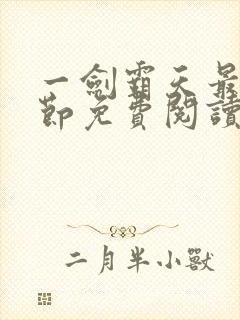 一劍霸天最
節免費閱讀
二月半小獸